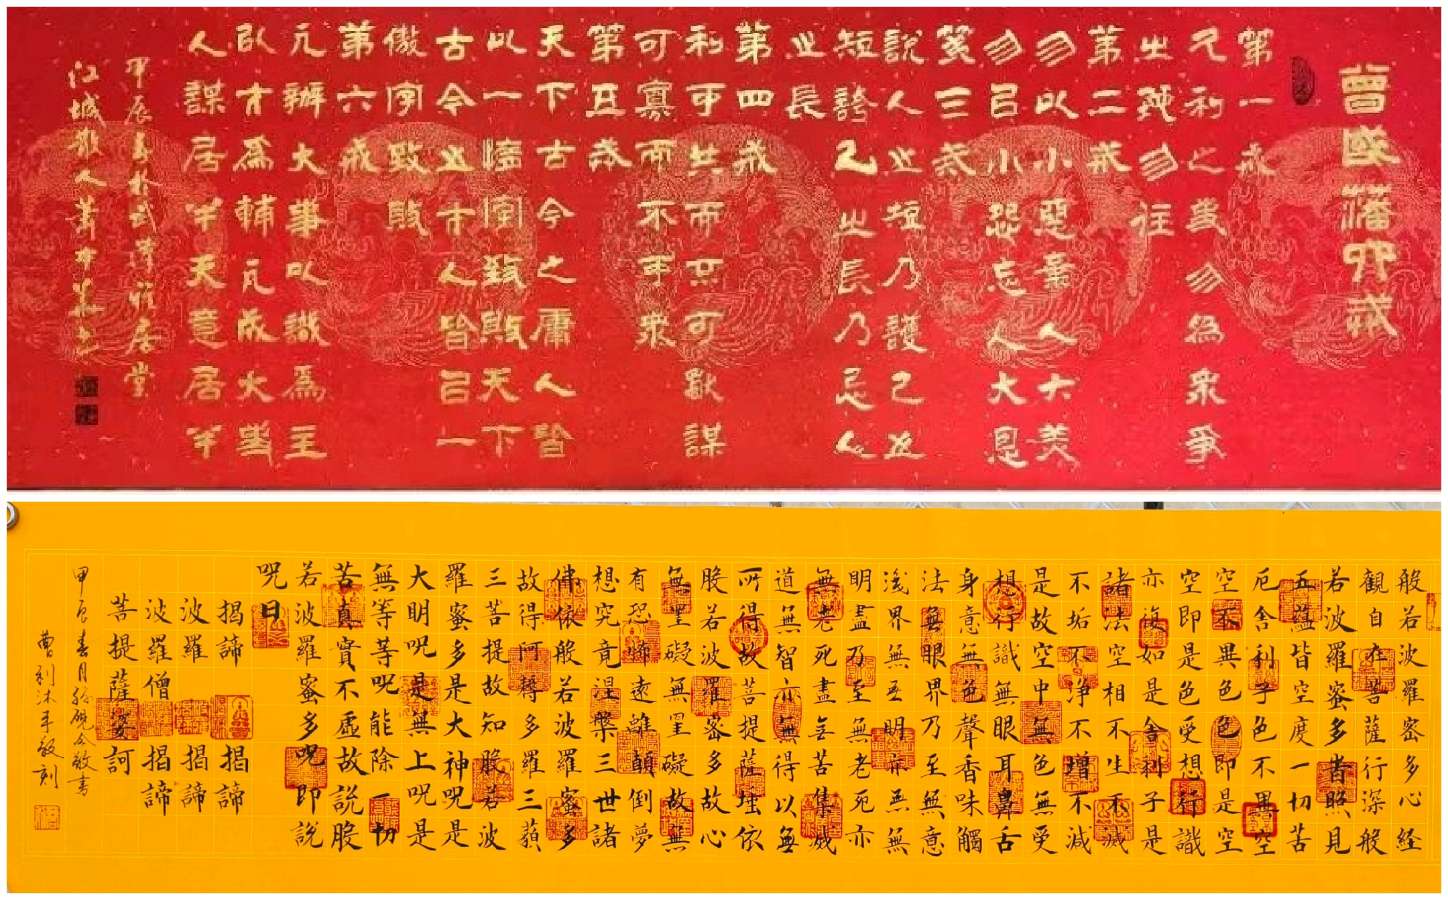 曾國藩六戒
第一戒
久利之處勿為衆爭
之地勿往
第二戒
勿以小惡棄人大美
勿以小怨忘人大恩
第三戒
說人之短乃護己之
短誇己之長乃忌人
之長
第四戒
利可共而不可獨謀
可寡而不可衆
第五戒
天下古今之庸人皆
以一惰字致敗天下
古今之才人皆以一
傲字致敗
第六戒
凡辦大事以識為主
以才為輔凡成大事
人謀居半天意居半
甲辰春於武漢雅居堂
江城散人蕭
般若波羅密多心経
觀自在菩薩行深般
若波羅蜜多時照見
五蘊皆空度一切苦
厄舍利子色不異空
空不異色色即是空
空即是色受想行識
亦復如是舍利子是
諸法空相不生不滅
不垢不淨不增不減
是故空中無色無受
想行識無眼耳鼻舌
身意無色聲香味觸
法無眼界乃至無意
識界無無明亦無無
明盡乃至無老死亦
無老死盡無苦集滅
道無智亦無得以無
所得故菩提薩埵依
般若波羅密多故心
無罣礙無罣礙故無
有恐怖遠離顛倒夢
想究竟涅槃三世諸
佛依般若波羅蜜多
故得阿耨多羅三藐
三菩提故知般若波
羅蜜多是大神呪是
大明呪是無上呪是
無等等呪能除一切
苦真實不虛故說般
若波羅蜜多呪即說
呪曰
揭諦 揭諦
波羅 揭諦
波羅僧 揭諦
菩提薩婆訶
甲辰春月 敬書
曹利沐手敬刻